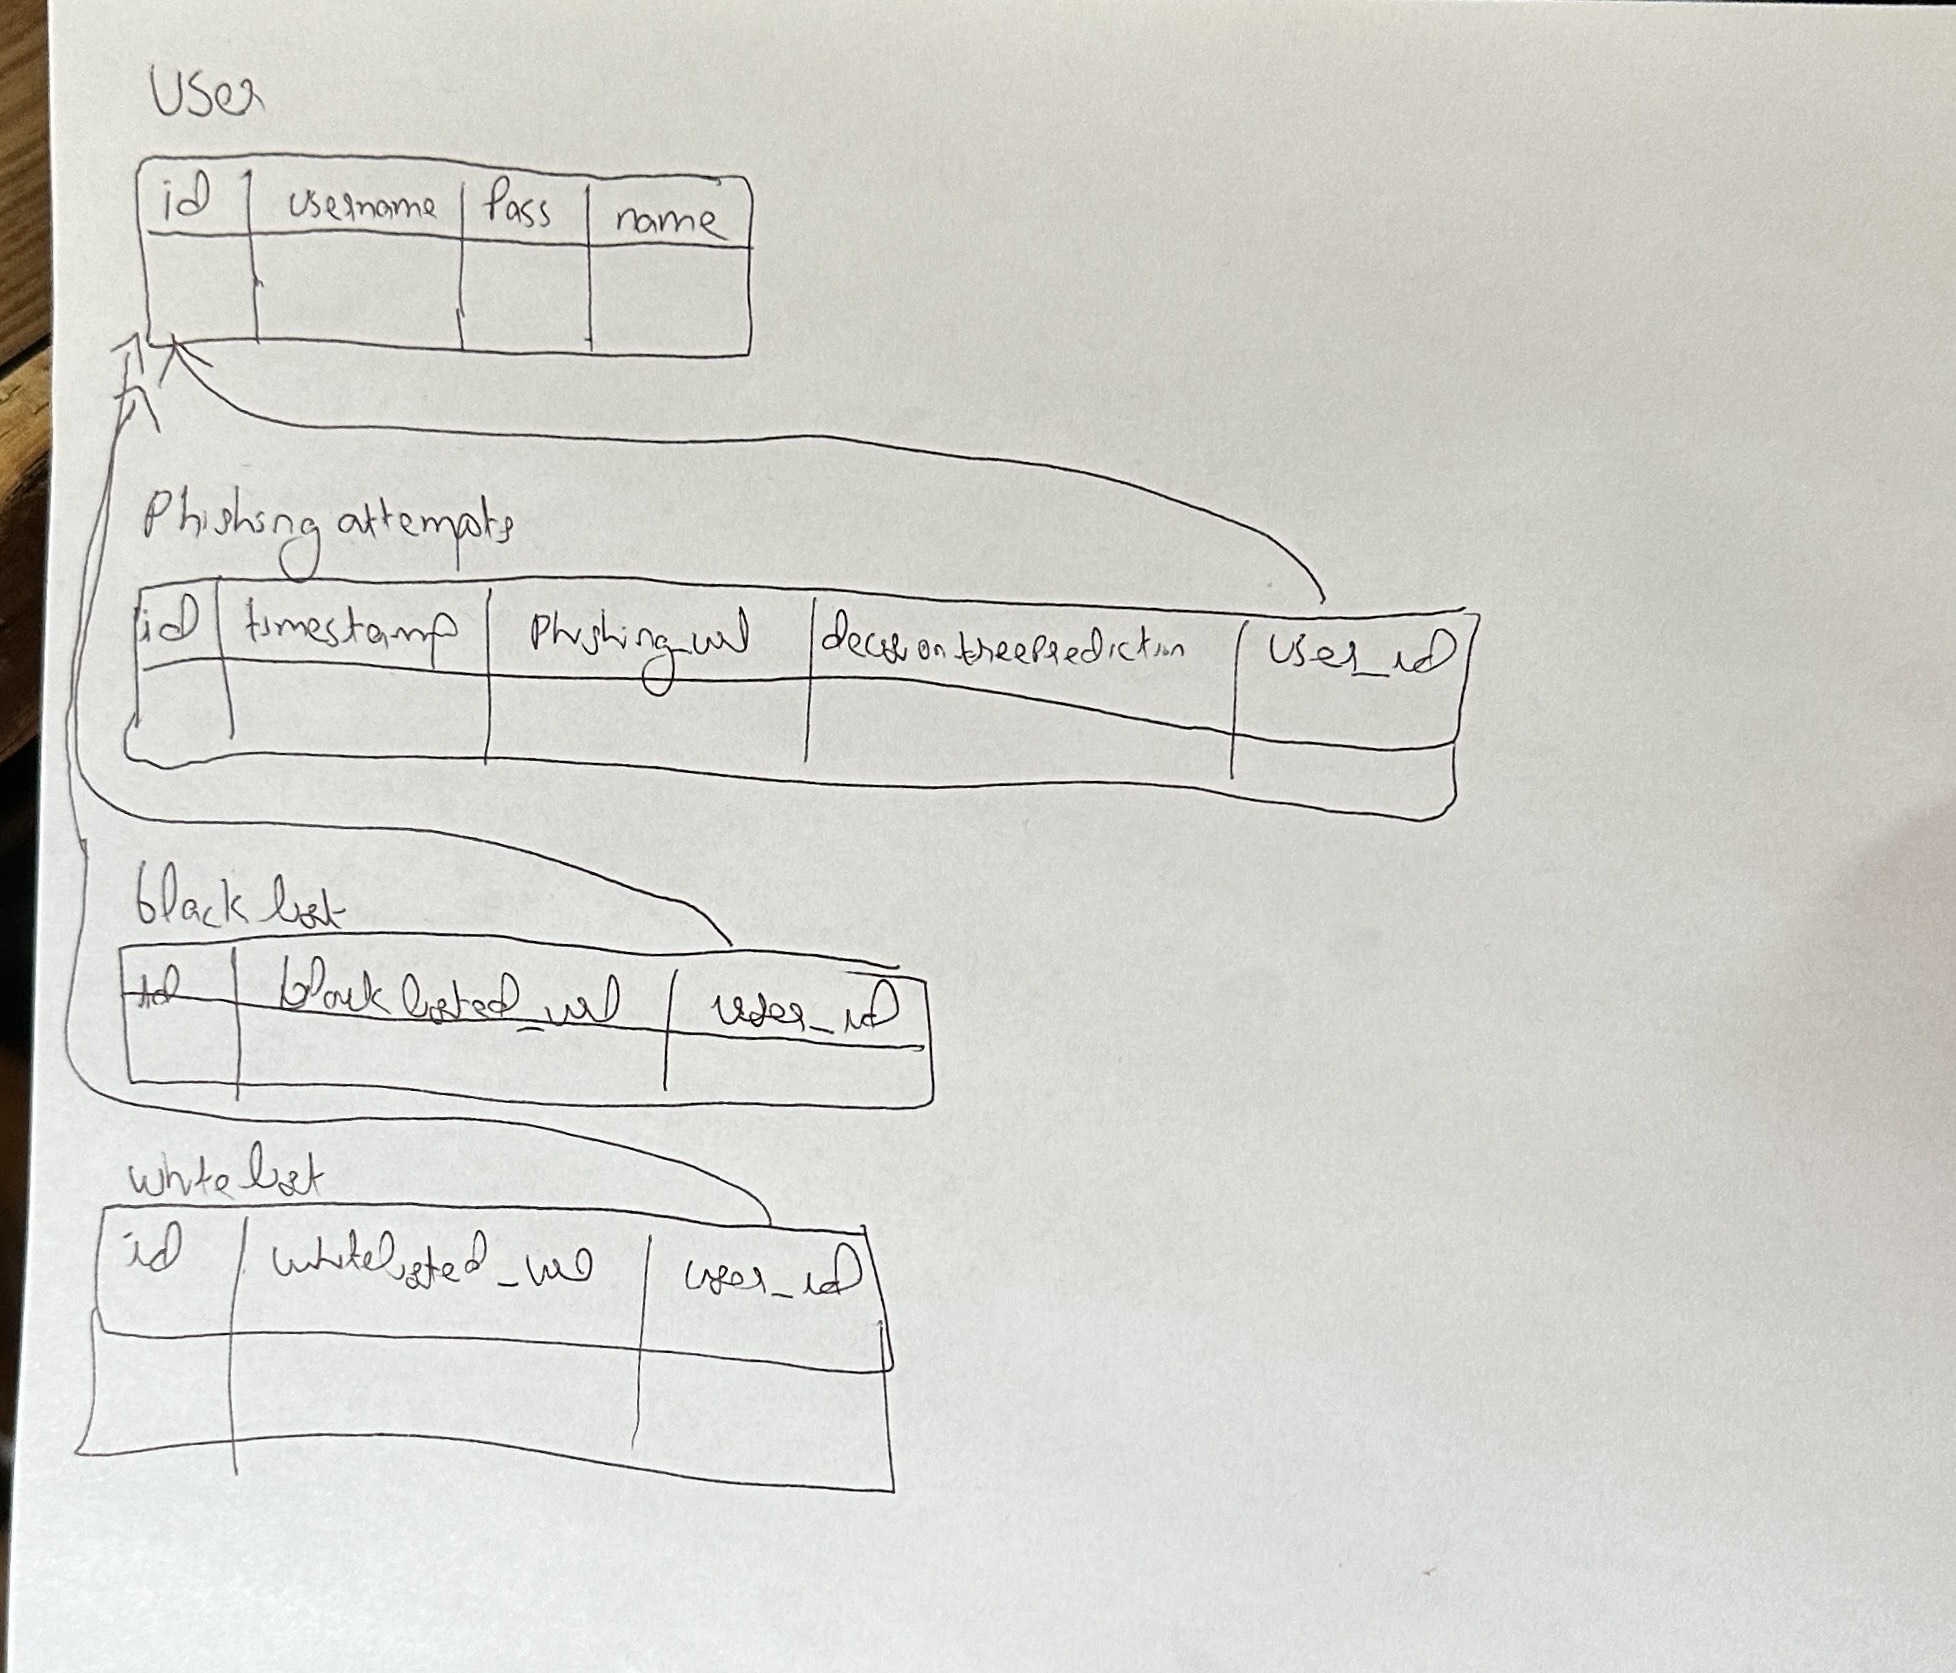 User
id username Pass name
Phishing attempts
id timestamp Phishing_url decisiontreePrediction user_id
black list
id blacklisted_url user_id
white list
id whitelisted_url user_id